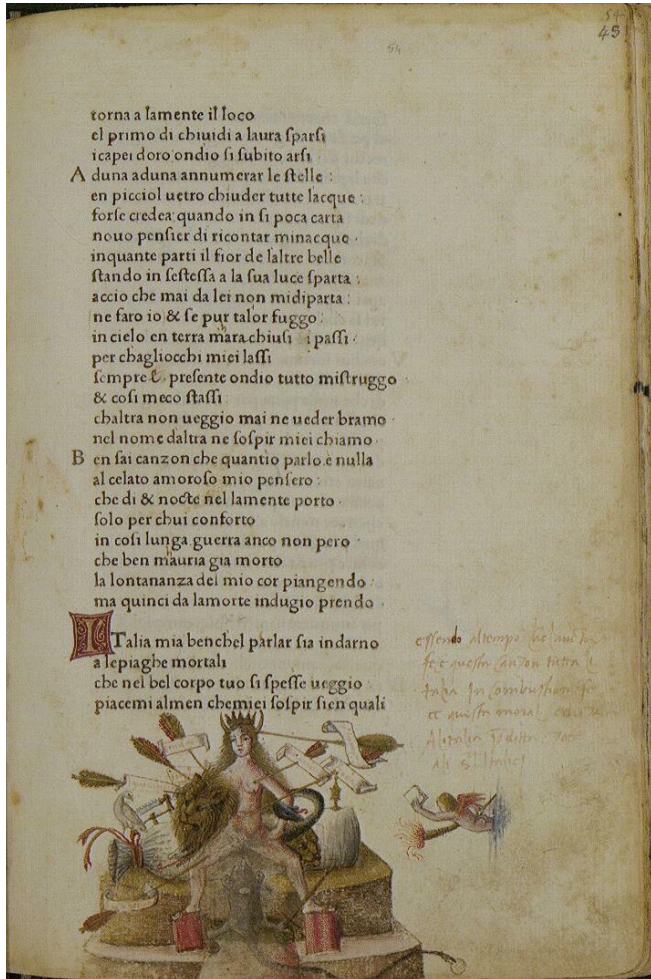 54
45
54
torna a lamente il loco
el primo di chiuidi a laura sparsi
icapei doro ondio si subito arsi
A duna aduna annumerar le stelle :
en picciol uetro chiuder tutte lacque :
forse credea quando in si poca carta
nouo pensier di ricontar minacque ·
inquante parti il fior de laltre belle
stando in sestessa a la sua luce sparta :
accio che mai da lei non midiparta :
ne faro io & se pur talor fuggo :
in cielo en terra mara chiusi i passi ·
per chagliocchi miei lassi
sempre e presente ondio tutto mistruggo
& cosi meco stassi
chaltra non ueggio mai ne ueder bramo ·
nel nome daltra ne sospir miei chiamo ·
B en sai canzon che quantio parlo e nulla
al celato amoroso mio pensero :
che di & nocte nel lamente porto ·
solo per chui conforto
in cosi lunga guerra anco non pero ·
che ben mauria gia morto
la lontananza del mio cor piangendo ·
ma quinci da lamorte indugio prendo ·
ITalia mia benchel parlar sia indarno
a lepiaghe mortali
che nel bel corpo tuo si spesse ueggio
piacemi almen chemiei sospir sien quali
essendo altempo